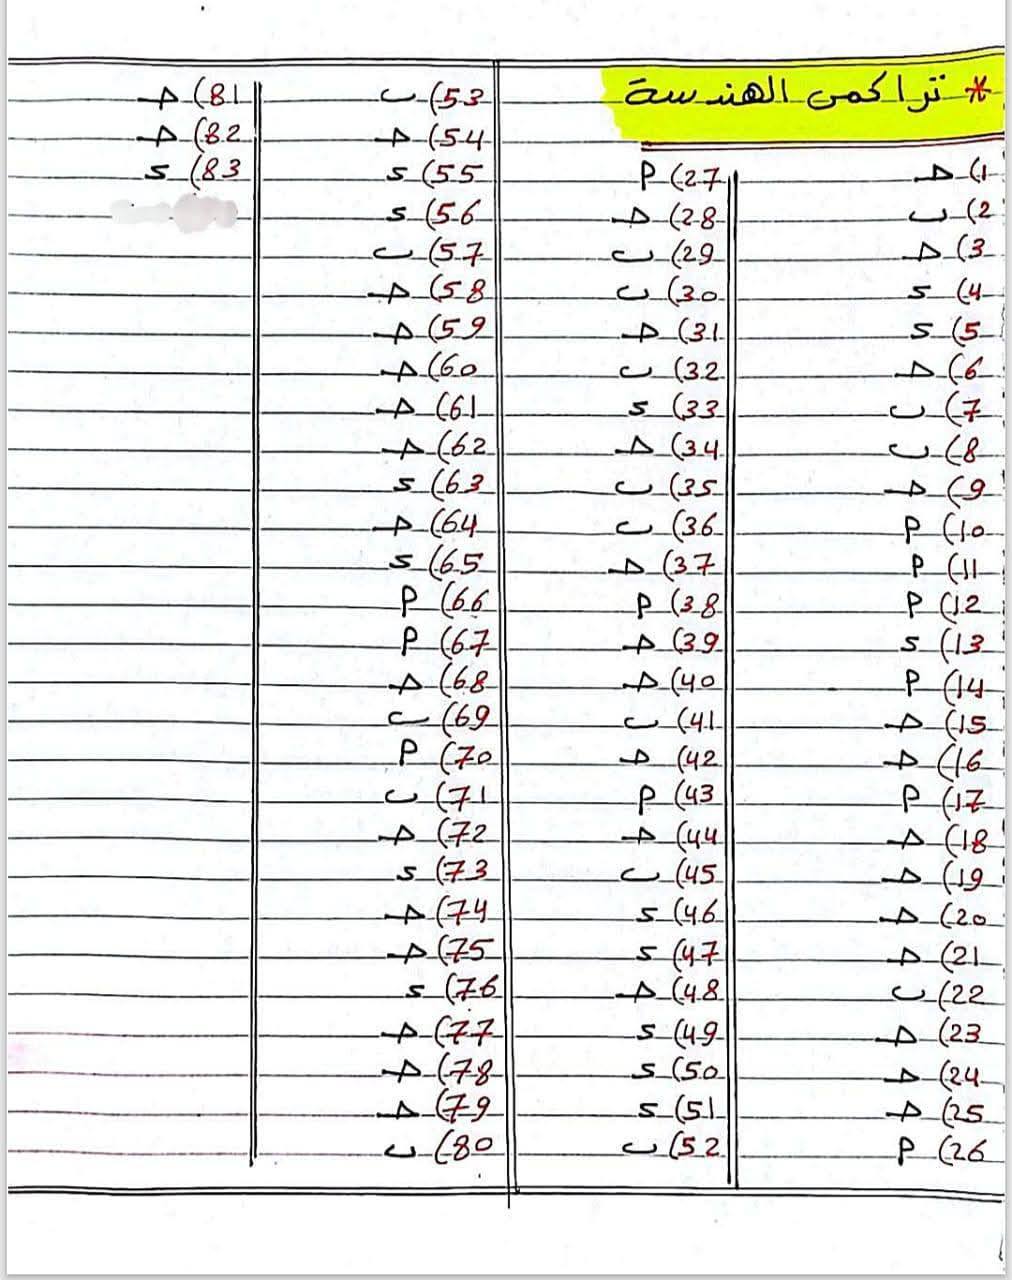 * تراكمى الهندسة
1) ج
2) ب
3) ج
4) د
5) د
6) ج
7) ب
8) ب
9) ج
10) أ
11) أ
12) أ
13) د
14) أ
15) ج
16) ج
17) أ
18) ج
19) ج
20) ج
21) ج
22) ب
23) ج
24) ج
25) ج
26) أ
27) أ
28) ج
29) ب
30) ب
31) ج
32) ب
33) د
34) ج
35) ب
36) ب
37) ج
38) أ
39) ج
40) ج
41) ب
42) ج
43) أ
44) ج
45) ب
46) د
47) د
48) ج
49) د
50) د
51) د
52) ب
53) ب
54) ج
55) د
56) د
57) ب
58) ج
59) ج
60) ج
61) ج
62) ج
63) د
64) ج
65) د
66) أ
67) أ
68) ج
69) ب
70) أ
71) ب
72) ج
73) د
74) ج
75) ج
76) د
77) ج
78) ج
79) ج
80) ب
81) ج
82) ج
83) د